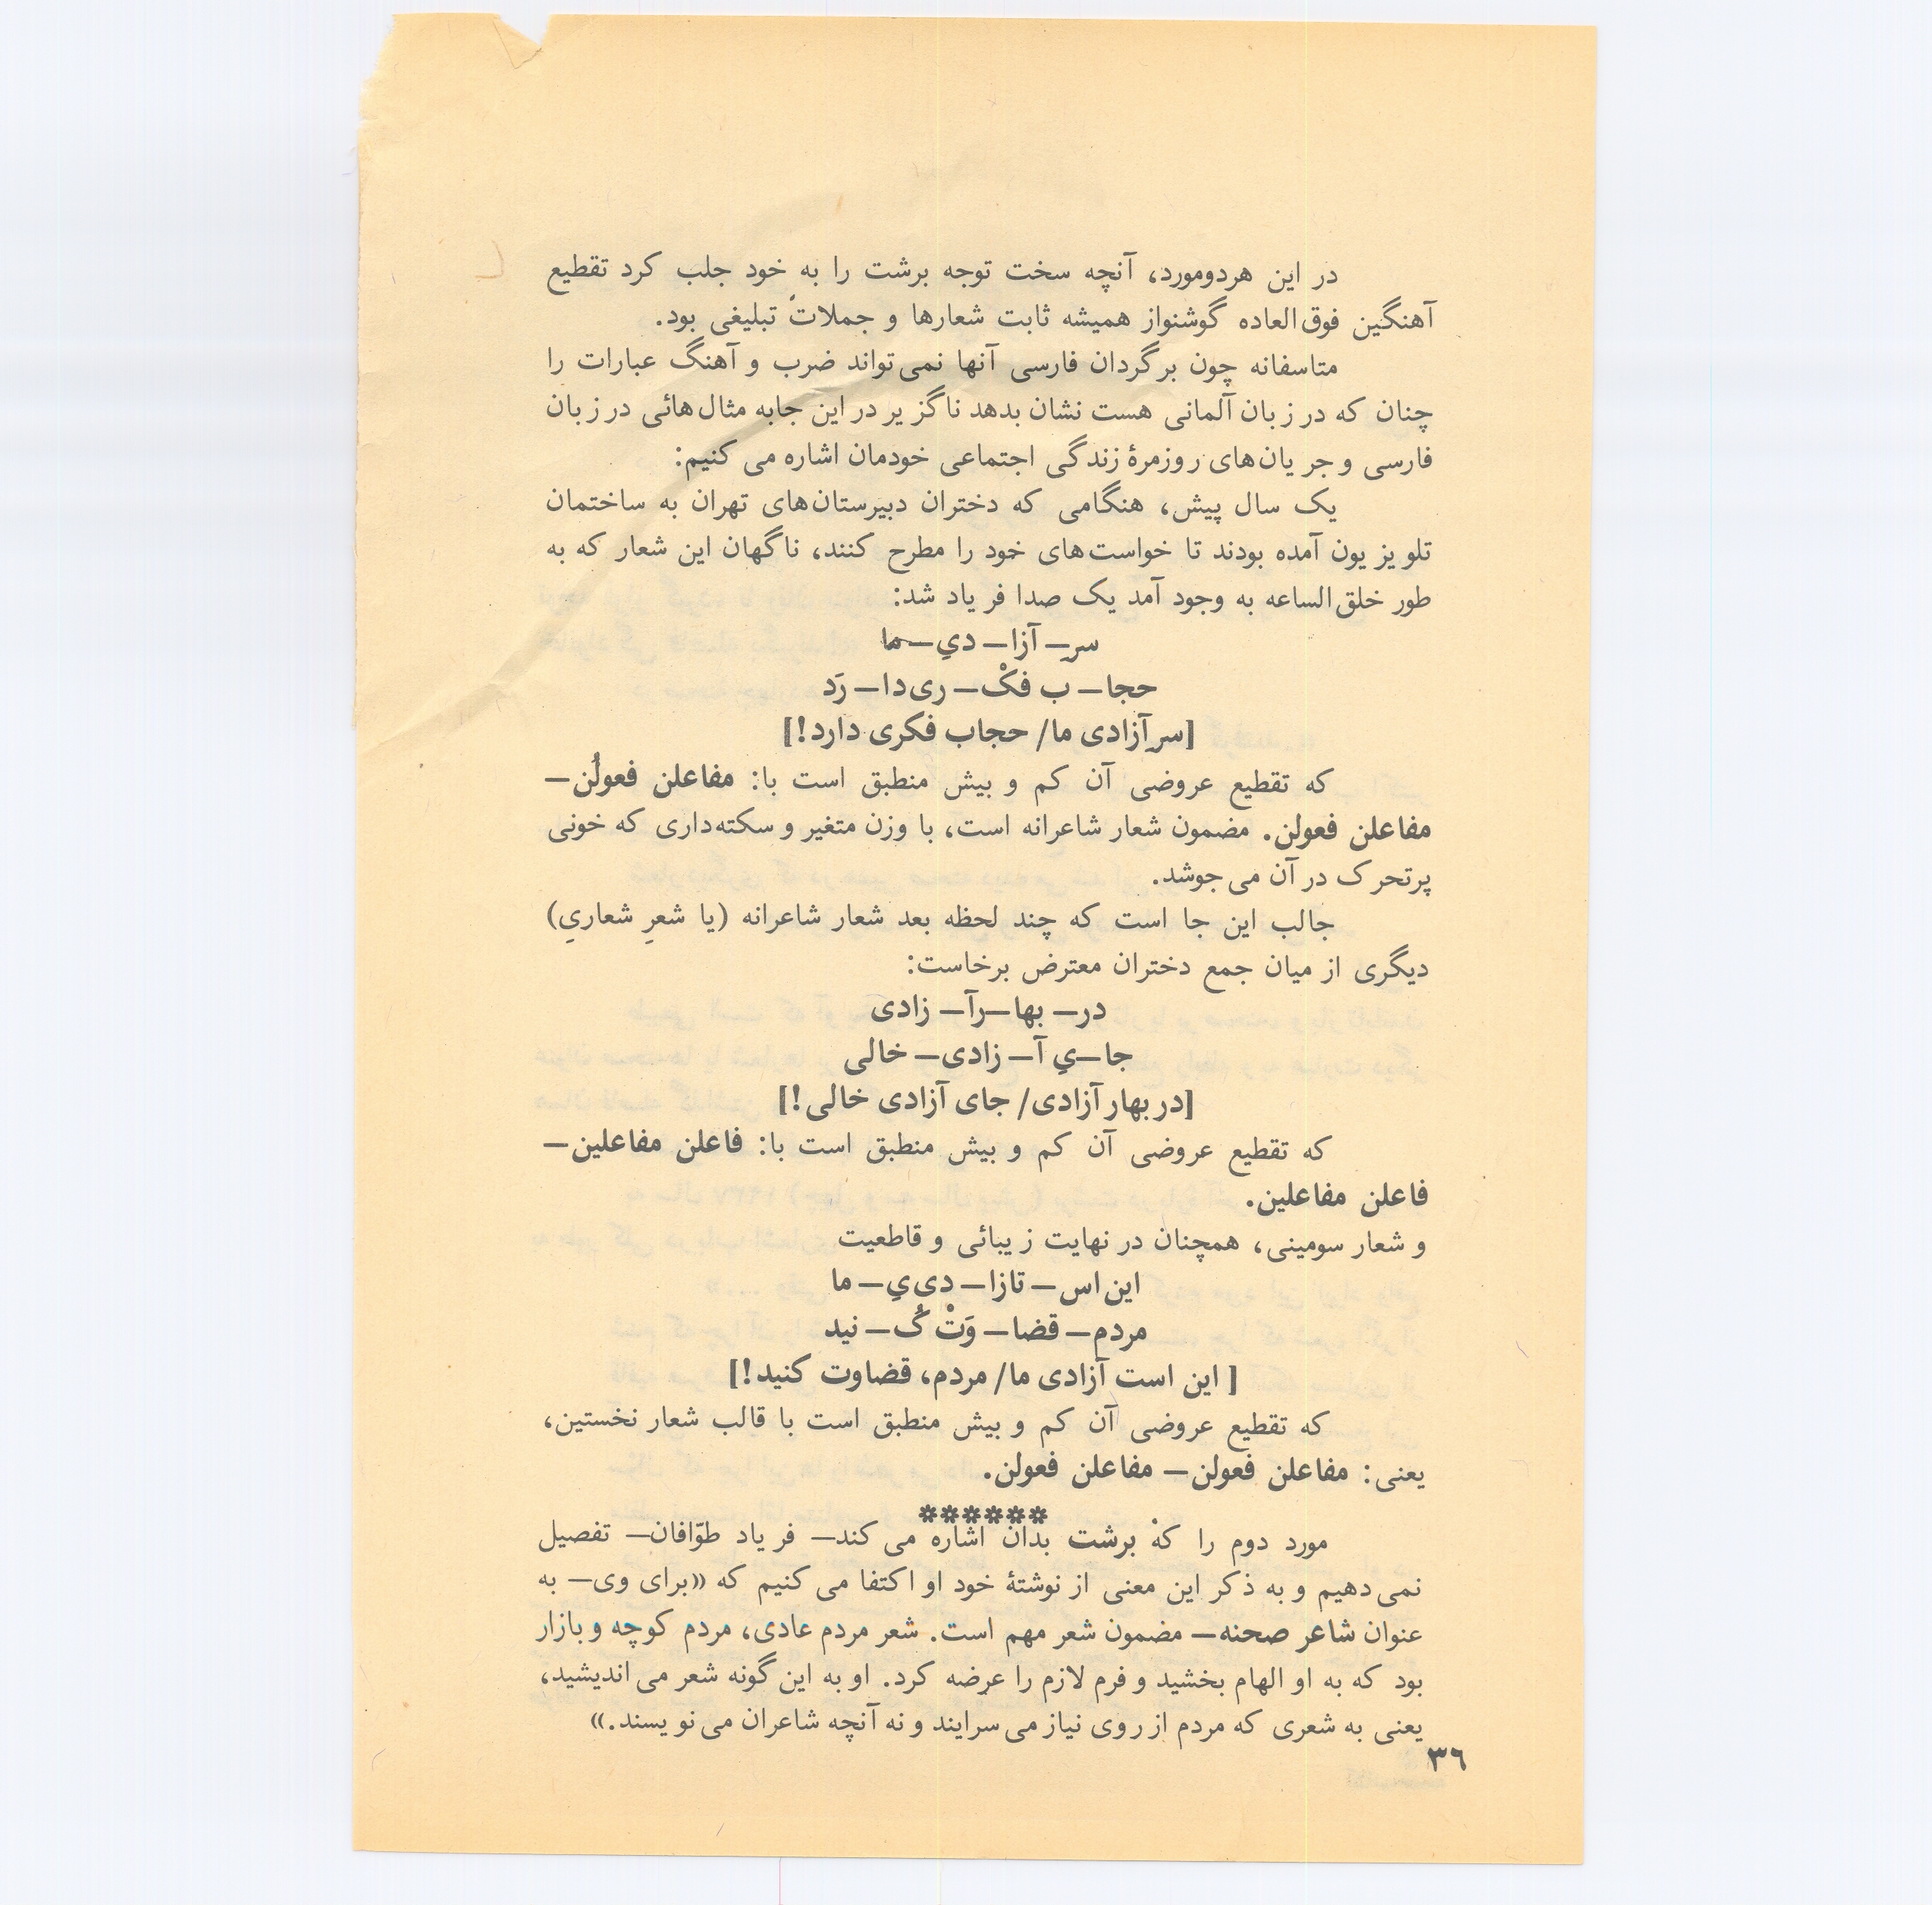 در این هردومورد، آنچه سخت توجه برشت را به خود جلب کرد تقطیع
آهنگین فوق‌العاده گوشنواز همیشه ثابت شعارها و جملات تبلیغی بود.
متاسفانه چون برگردان فارسی آنها نمی‌تواند ضرب و آهنگ عبارات را
چنان که در زبان آلمانی هست نشان بدهد ناگزیر در این جابه مثال‌هائی در زبان
فارسی و جریان‌های روزمرهٔ زندگی اجتماعی خودمان اشاره می کنیم:
یک سال پیش، هنگامی که دختران دبیرستان‌های تهران به ساختمان
تلویزیون آمده بودند تا خواست‌های خود را مطرح کنند، ناگهان این شعار که به
طور خلق‌الساعه به وجود آمد یک صدا فریاد شد:
سرِ— آزا— دیِ— ما
حجا— ب فکْ— ری‌دا— رَد
[سرِ‌آزادی ما/ حجاب فکری دارد!]
که تقطیع عروضی آن کم و بیش منطبق است با: مفاعلن فعولُن—
مفاعلن فعولن. مضمون شعار شاعرانه است، با وزن متغیر و سکته‌داری که خونی
پرتحرک در آن می‌جوشد.
جالب این جا است که چند لحظه بعد شعار شاعرانه (یا شعرِ شعاریِ)
دیگری از میان جمع دختران معترض برخاست:
در— بها—رآ— زادی
جا—یِ آ— زادی— خالی
[در بهار آزادی/ جای آزادی خالی!]
که تقطیع عروضی آن کم و بیش منطبق است با: فاعلن مفاعلین—
فاعلن مفاعلین.
و شعار سومینی، همچنان در نهایت زیبائی و قاطعیت
این اس— تازا— دی‌یِ— ما
مردم— قضا— وَتْ کُ— نید
[ این است آزادی ما/ مردم، قضاوت کنید!]
که تقطیع عروضی آن کم و بیش منطبق است با قالب شعار نخستین،
یعنی: مفاعلن فعولن— مفاعلن فعولن.
******
مورد دوم را که برشت بدان اشاره می کند— فریاد طوّافان— تفصیل
نمی‌دهیم و به ذکر این معنی از نوشتهٔ خود او اکتفا می کنیم که «برای وی— به
عنوان شاعر صحنه— مضمون شعر مهم است. شعر مردم عادی، مردم کوچه و بازار
بود که به او الهام بخشید و فرم لازم را عرضه کرد. او به این گونه شعر می اندیشید،
یعنی به شعری که مردم از روی نیاز می‌سرایند و نه آنچه شاعران می‌نویسند.»
٣٦